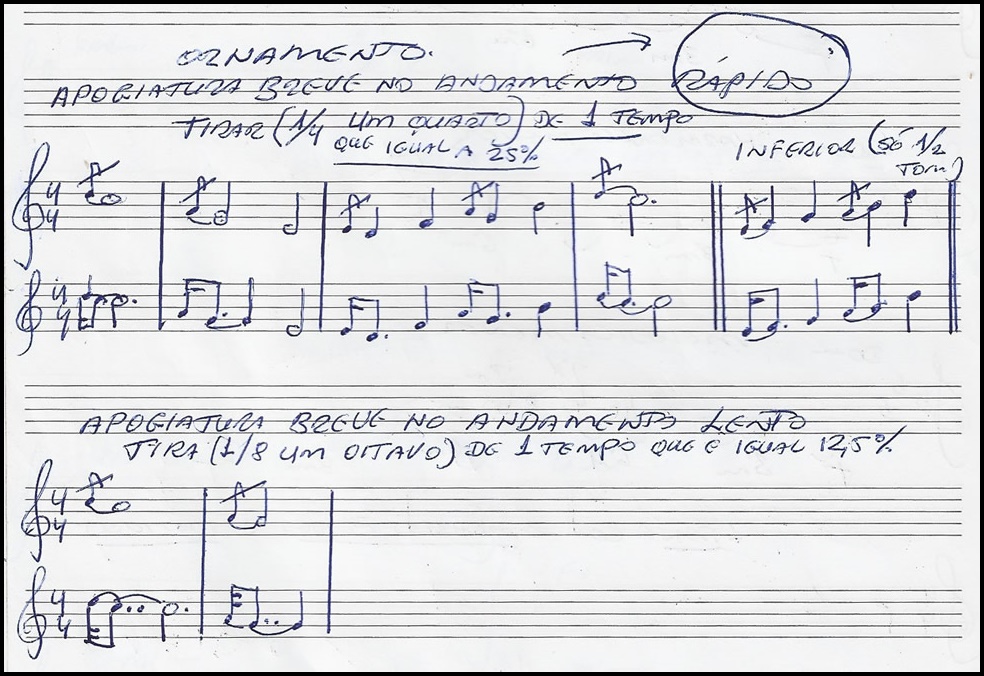 ORNAMENTO.
APOGIATURA BREVE NO ANDAMENTO RÁPIDO
TIRAR (1/4 UM QUARTO) DE 1 TEMPO
QUE IGUAL A 25%
INFERIOR (SÓ 1/2
TOM)
4
4
4
4
APOGIATURA BREVE NO ANDAMENTO LENTO
TIRA (1/8 UM OITAVO) DE 1 TEMPO QUE É IGUAL 12,5%
4
4
4
4